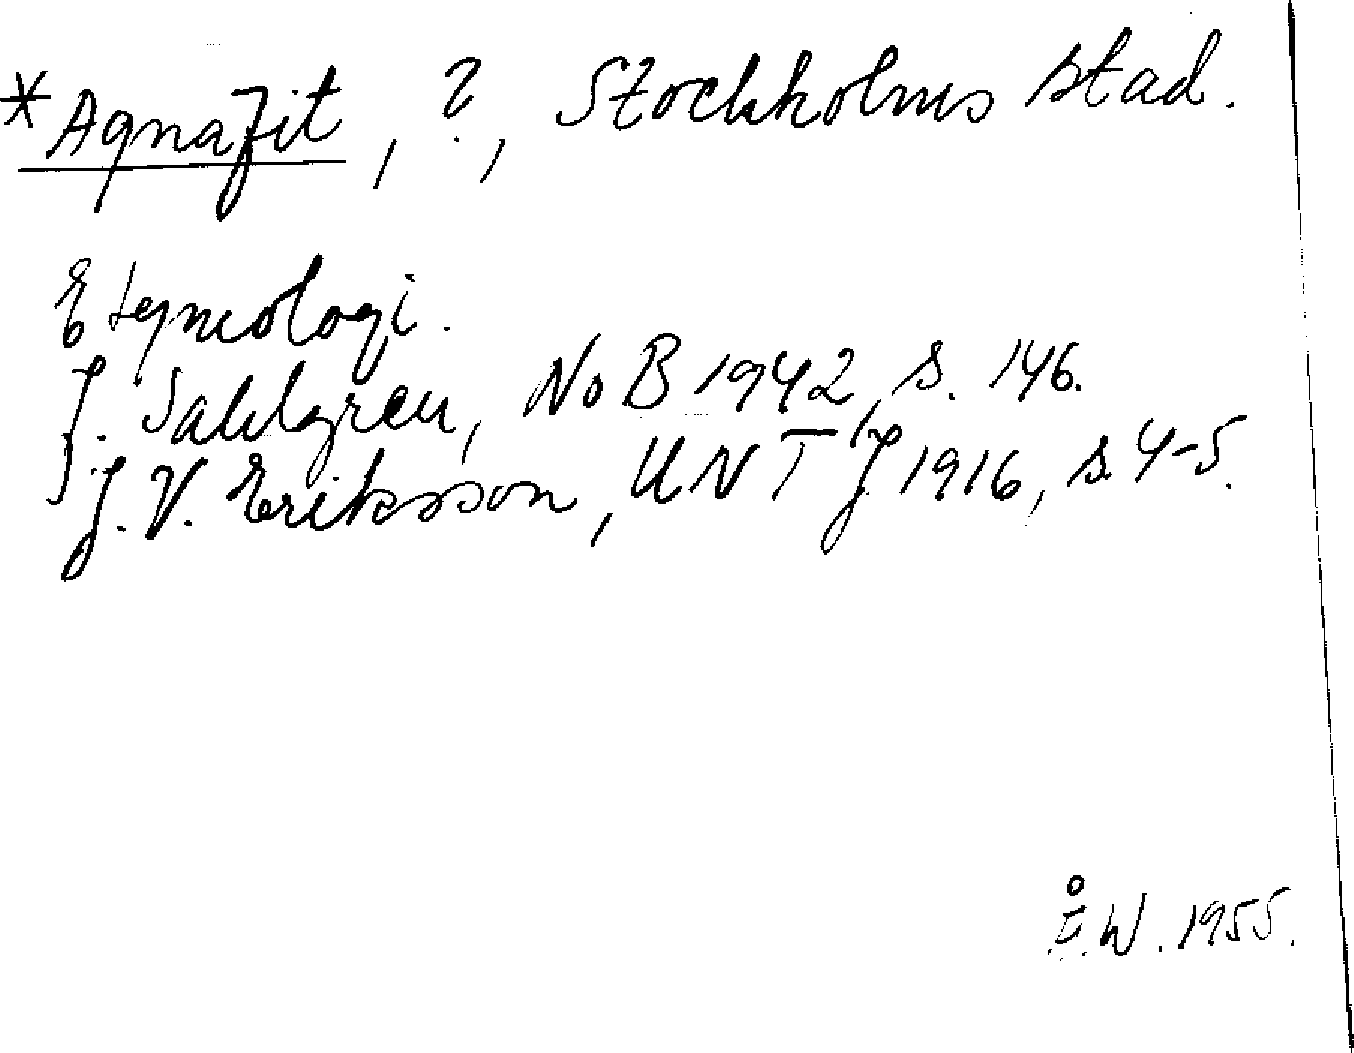 *Agnafit, ?, Stockholms stad.
Etymologi.
J. Sahlgren, NoB 1942, s. 146.
J. V. Eriksson, UNT J 1916, s. 4-5.
Å.W. 1955.